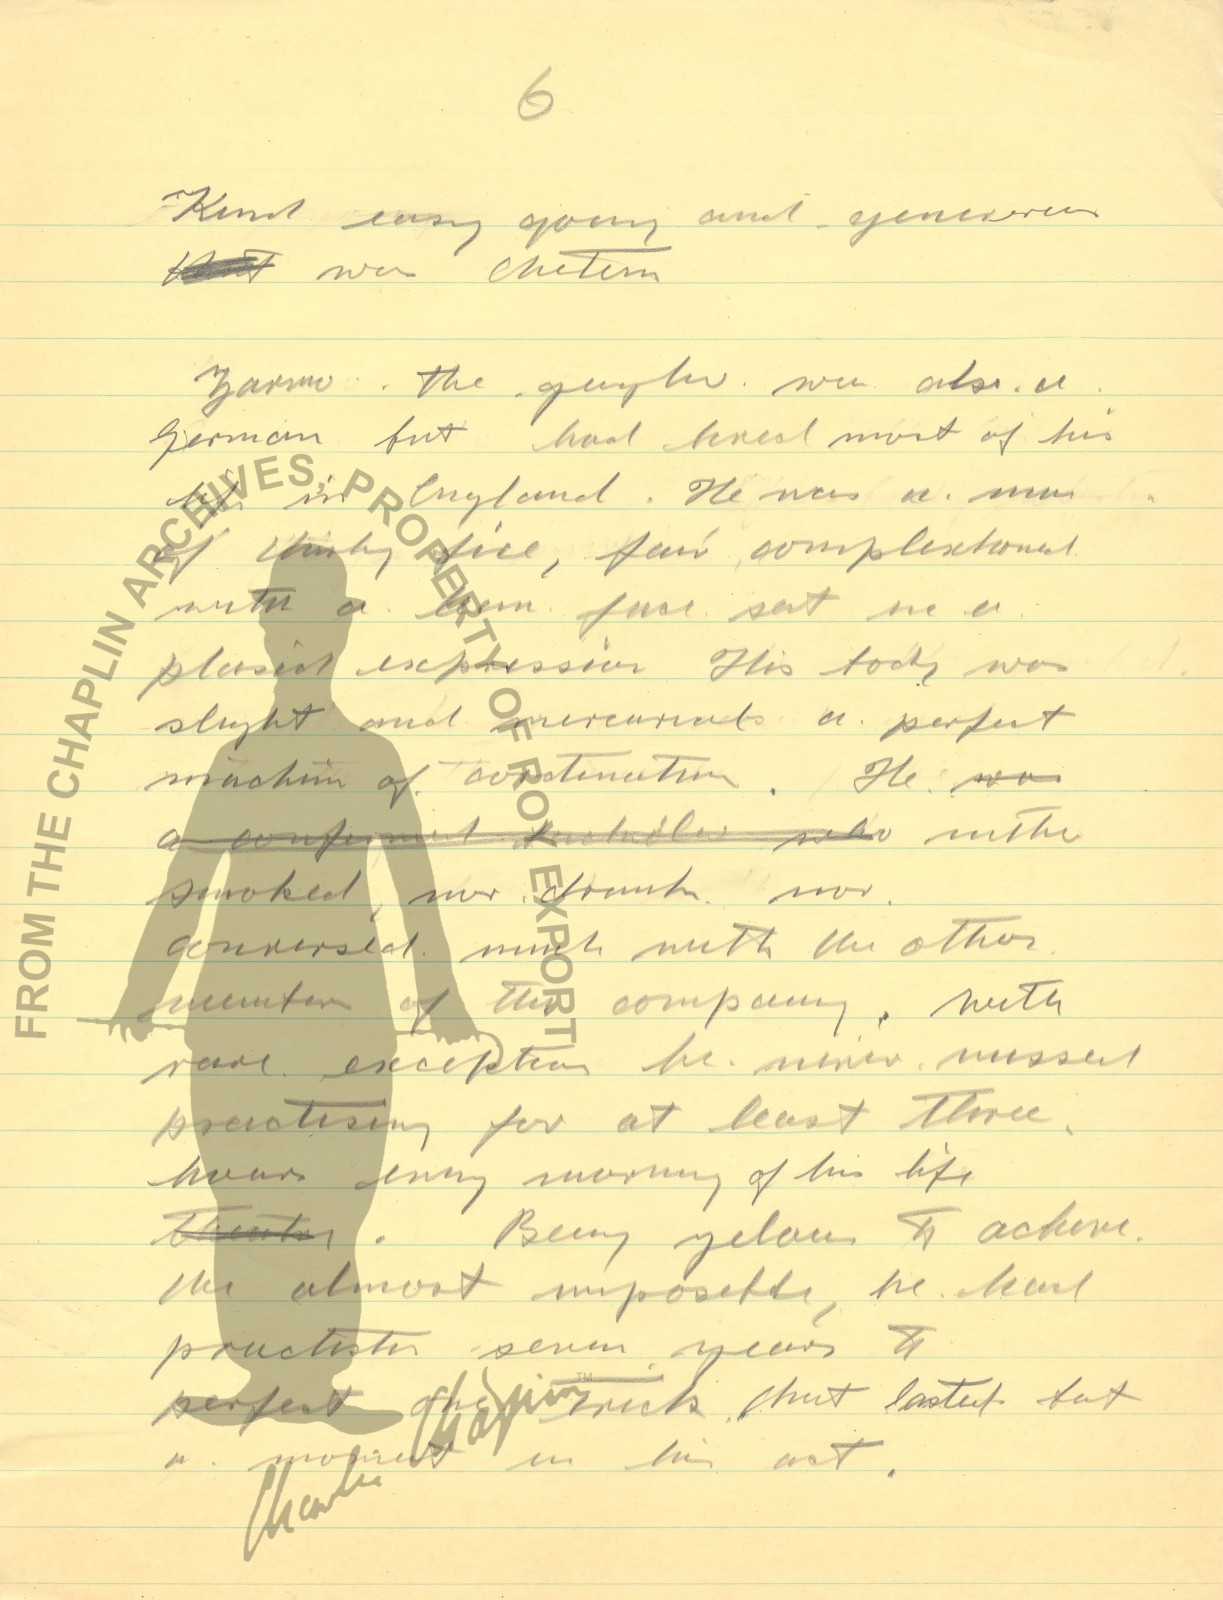 6
Kind easy going and generous
was
Zarmo. the was also. a.
German but had lived most of his
life in England. He was a. man
of thirty five, fair complextioned
with a. face. set in a
plasid expression His body was
slight and a. perfect
machine of. cordination. He. was
a confirmed bachelor who nither
smoked, nor. drank. nor.
conversed. much with the other.
members of the company. with
rare. exception he. never. missed
practising for at least three.
hours every morning of his life
theatre. Being to achieve.
the almost imposeble, he. had
practister seven years to
perfect one trick. that lasted but
a. moment in his act.
FROM THE CHAPLIN ARCHIVES, PROPERTY OF ROY EXPORT
Charlie Chaplin™